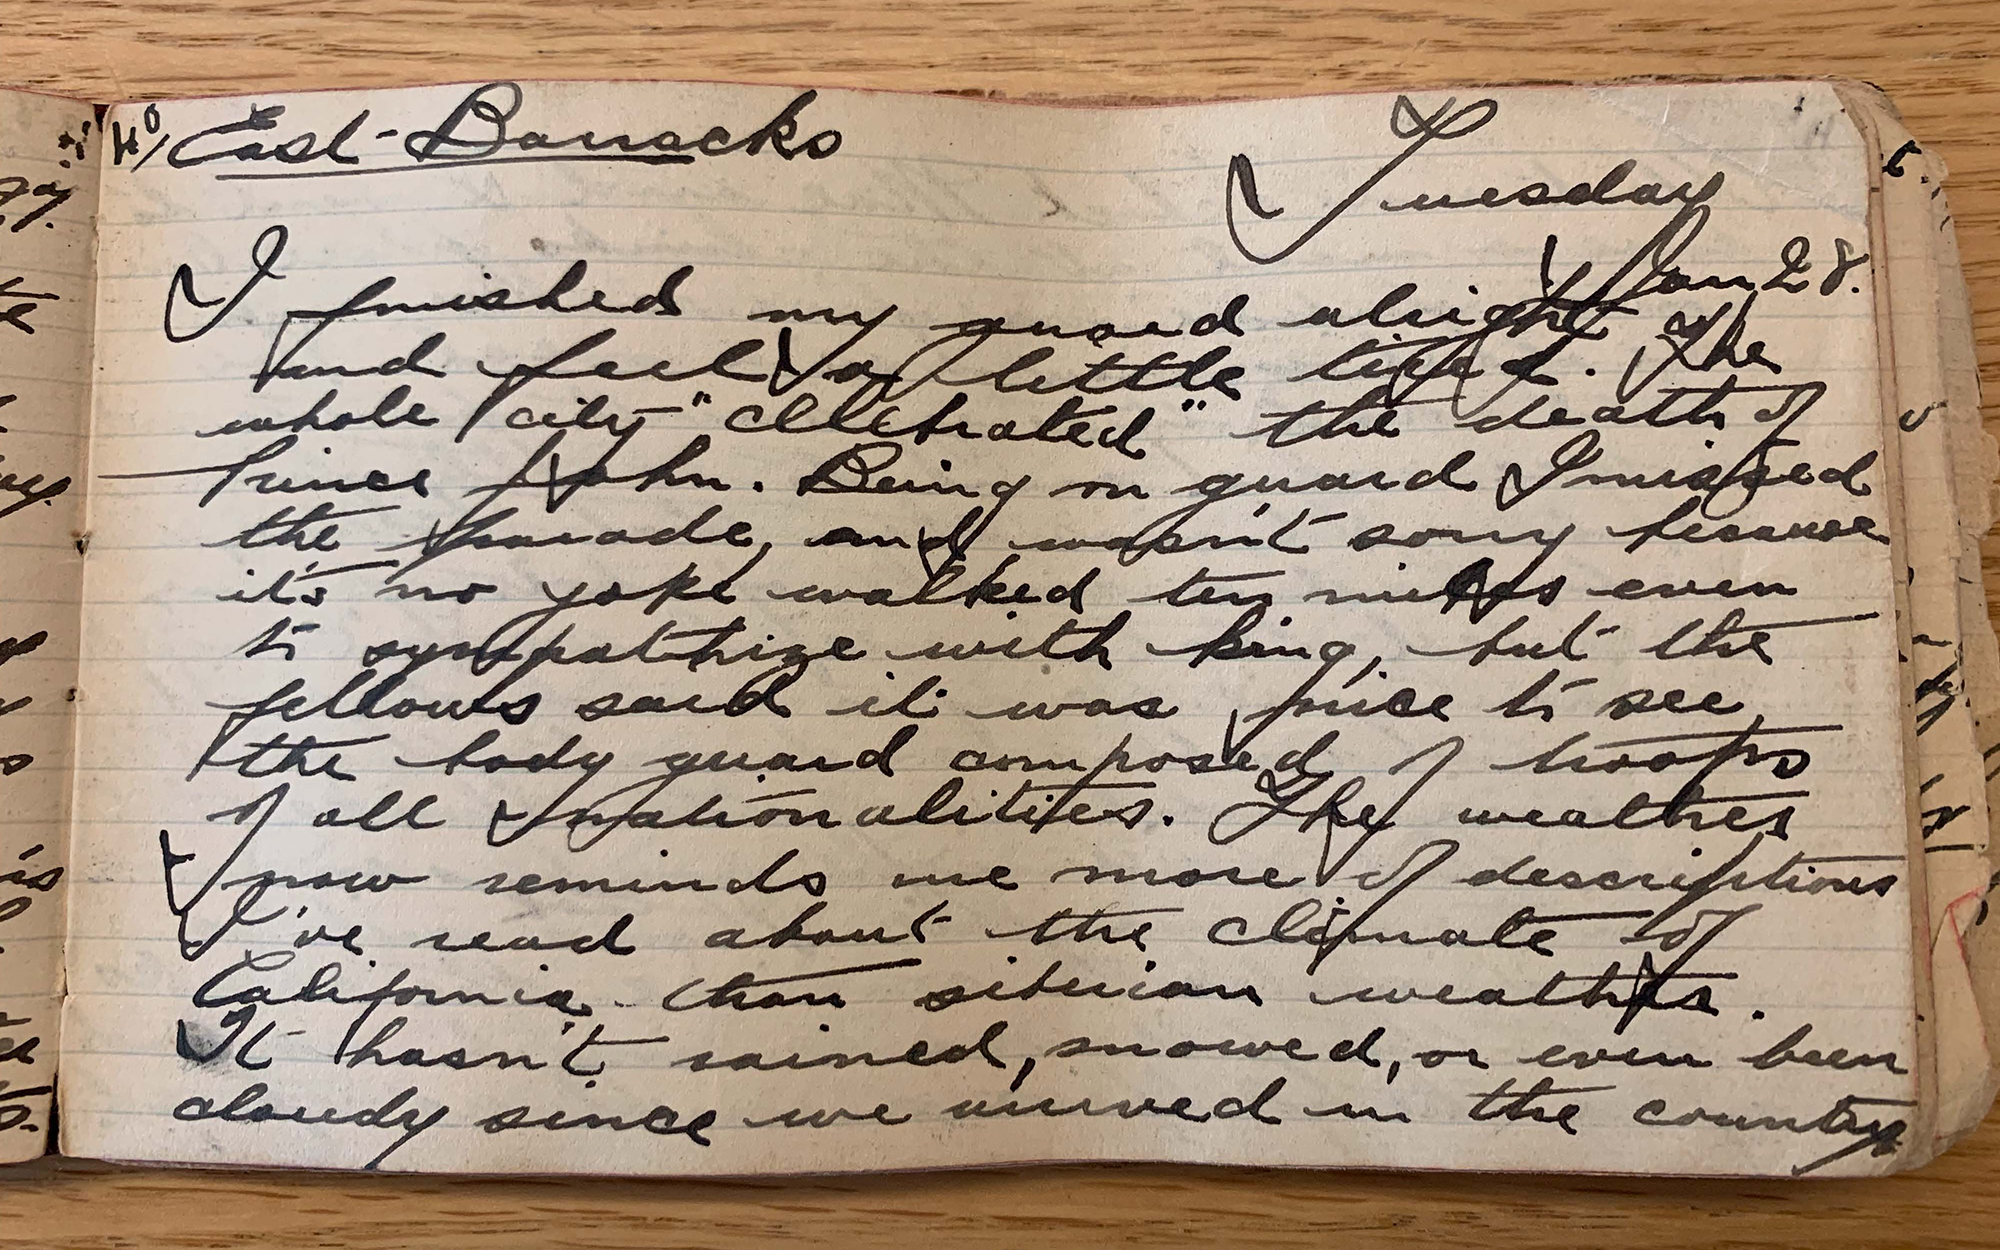 40/ East Barracks
Tuesday
Jan 28.
I finished my guard alright
and feel a little tired. The
whole city "celebrated" the death of
Prince John. Being on guard I missed
the parade, and wasn't sorry because
it's no yoke walked ten miles even
to sympathize with king, but the
fellows said it was nice to see
the body guard composed of troops
of all nationalities. The weather
now reminds me more of descriptions
I've read about the climate of
California than siberian weather.
It hasn't rained, snowed, or even been
cloudy since we arrived in the country